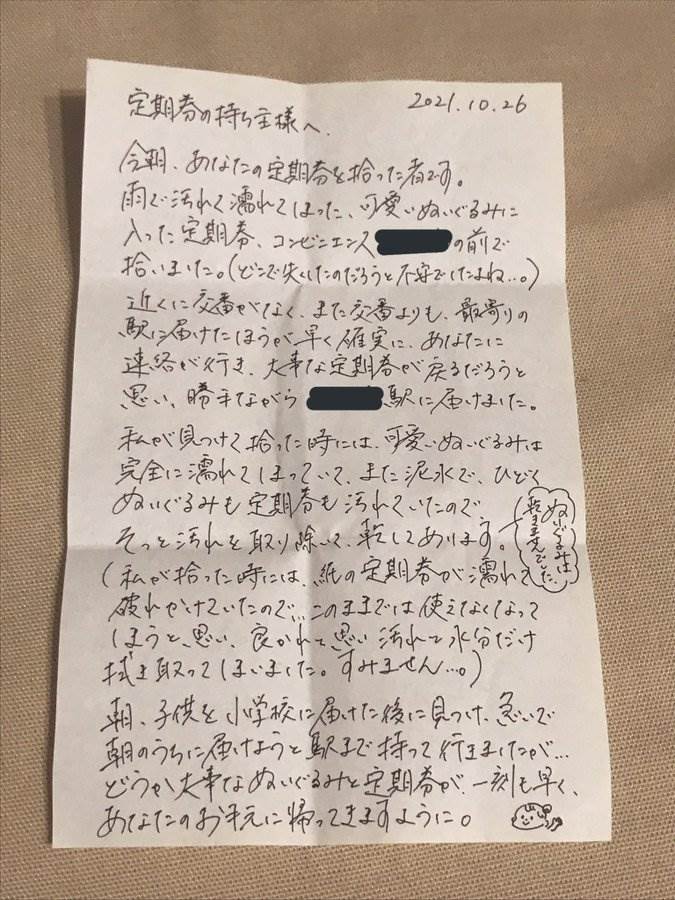 2021.10.26
定期券の持ち主様へ、
今朝、あなたの定期券を拾った者です。
雨で汚れて濡れてしまった、可愛いぬいぐるみに
入った定期券、コンビニエンス の前で
拾いました。(どこで失くしたのだろうと不安でしたよね…。)
近くに交番がなく、また交番よりも、最寄りの
駅に届けたほうが、早く確実に、あなたに
連絡が行き、大事な定期券が戻るだろうと
思い、勝手ながら 駅に届けました。
私が見つけて拾った時には、可愛いぬいぐるみは
完全に濡れてしまっていて、また泥水で、ひどく
ぬいぐるみも定期券も汚れていたので
そっと汚れを取り除いて、乾してあります。
ぬいぐるみは
乾きませんでした…
(私が拾った時には、紙の定期券が濡れて
破れかけていたので…このままでは使えなくなって
しまうと思い、良かれと思い汚れと水分だけ
拭き取ってしまいました。すみません…。)
朝、子供を小学校に届けた後に見つけ、急いで
朝のうちに届けようと駅まで持って行きましたが…
どうか大事なぬいぐるみと定期券が、一刻も早く、
あなたのお手元に帰ってきますように。